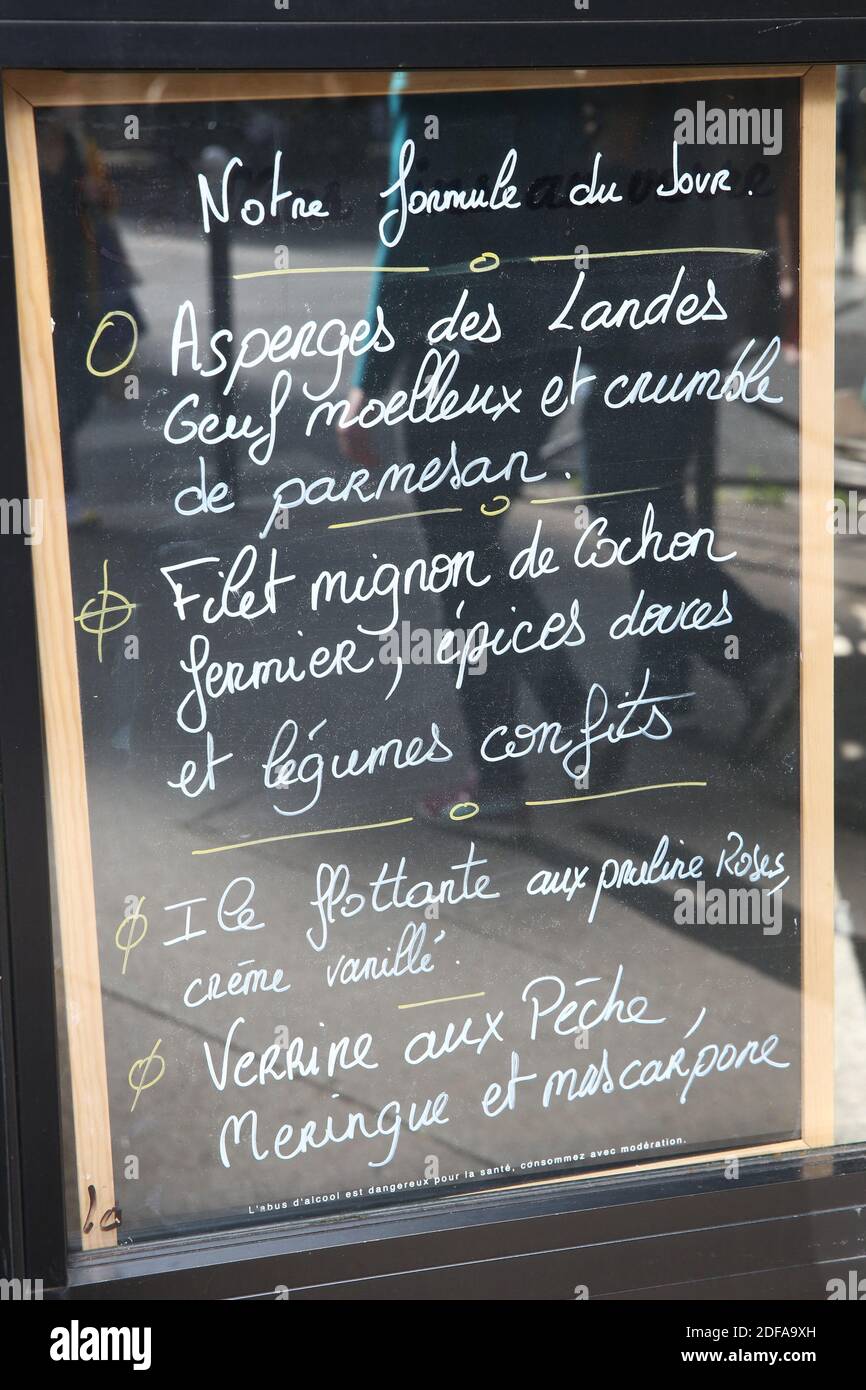 Notre formule du Jour.
Asperges des Landes
Oeuf moelleux et crumble
de parmesan.
Filet mignon de Cochon
fermier, épices douces
et légumes confits
Ile flottante aux praline Roses,
crème vanillé.
Verrine aux Pêche,
Meringue et mascarpone
L'abus d'alcool est dangereux pour la santé, consommez avec modération.
alamy
Image ID: 2DFA9XH
www.alamy.com